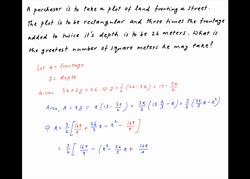 A purchaser is to take a plot of land fronting a street.
The plot is to be rectangular and three times the frontage
added to twice it's depth is to be 26 meters. What is
the greatest number of square meters he may take?
Let x = frontage
y = depth
Given 3x + 2y = 26 ⇒ y = 1/2 (26 - 3x) = 13 - 3x/2
Area, A = xy = x (13 - 3x/2) = 3x/2 (13·2/3 - x) = 3/2 (26/3 x - x²)
⇒ A = 3/2 [ 169/9 + 26/3 x - x² - 169/9 ]
= 3/2 [ 169/9 - (x² - 26/3 x + 169/9